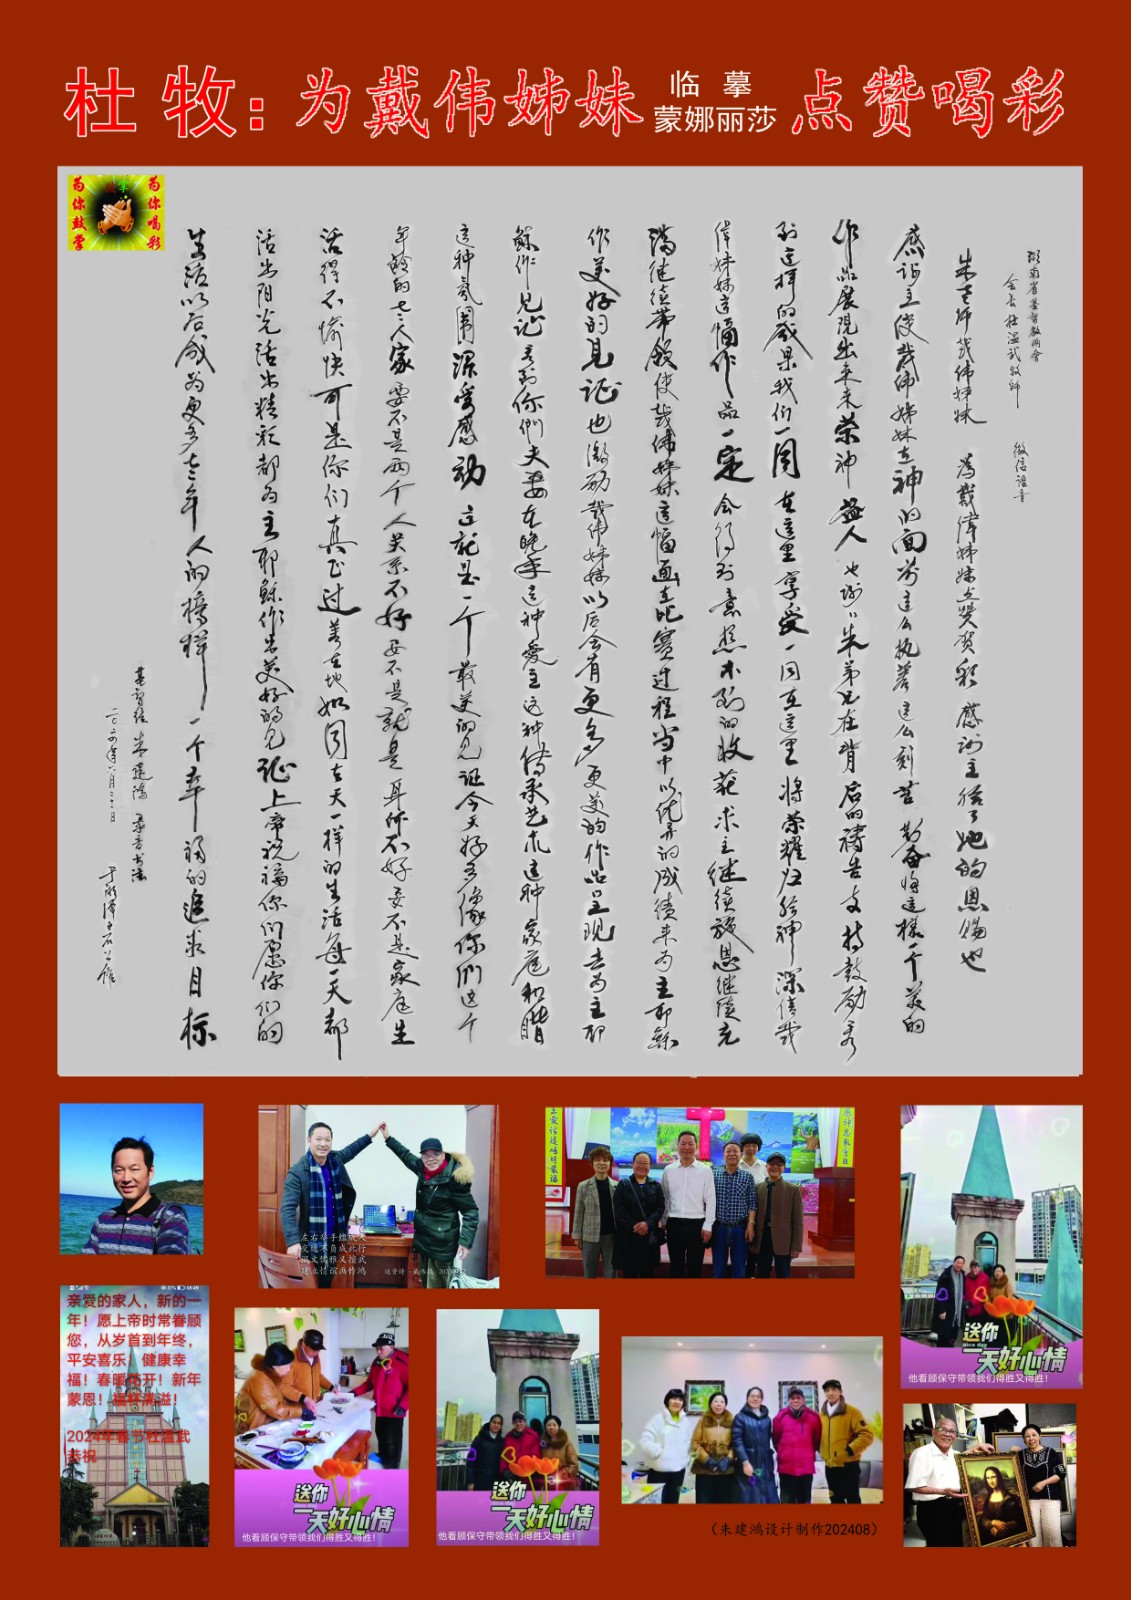 杜牧:为戴伟姊妹临摹蒙娜丽莎点赞喝彩
为你鼓掌
为你喝彩
湖南省基督教两会
会长杜温武牧师 微信语音
朱老师戴伟姊妹 为戴伟姊妹点赞贺彩 感谢主给了她的恩赐也
感谢主使戴伟姊妹在神的面前这么执着这么刻苦勤奋将这样一个美的
作品展现出来来荣神益人也谢谢朱弟兄在背后的祷告支持鼓励看
到这样的成果我们一同在这里享受一同在这里将荣耀归给神深信戴
伟姊妹这幅作品一定会得到意想不到的收获求主继续施恩继续充
满继续带领使戴伟姊妹这幅画在比赛过程当中以优异的成绩来为主耶稣
作美好的见证也激励戴伟姊妹以后会有更多更美的作品呈现去为主耶
稣作见证看到你们夫妻在晚年这种爱主这种传承艺术这种家庭和谐
这种氛围深受感动这就是一个最美的见证今天好多像你们这个
年龄的老人家要不是两个人关系不好要不是就是身体不好要不是家庭生
活得不愉快可是你们真正过着在地如同在天一样的生活每一天都
活出阳光活出精彩都为主耶稣作出美好的见证上帝祝福你们愿你们的
生活以后成为更多老年人的榜样一个幸福的追求目标
朱建鸿录音书法
二〇二四年六月二十二日
左右举手组成人
交进不负成此行
温文儒雅又擅武
建立情谊画作鸿
亲爱的家人，新的一
年！愿上帝时常眷顾
您，从岁首到年终，
平安喜乐！健康幸
福！春暖花开！新年
蒙恩！福杯满溢！
2024年春节杜温武
恭祝
送你
一天好心情
他看顾保守带领我们得胜又得胜！
送你
一天好心情
他看顾保守带领我们得胜又得胜！
送你
nice day
一天好心情
他看顾保守带领我们得胜又得胜！
（朱建鸿设计制作202408）